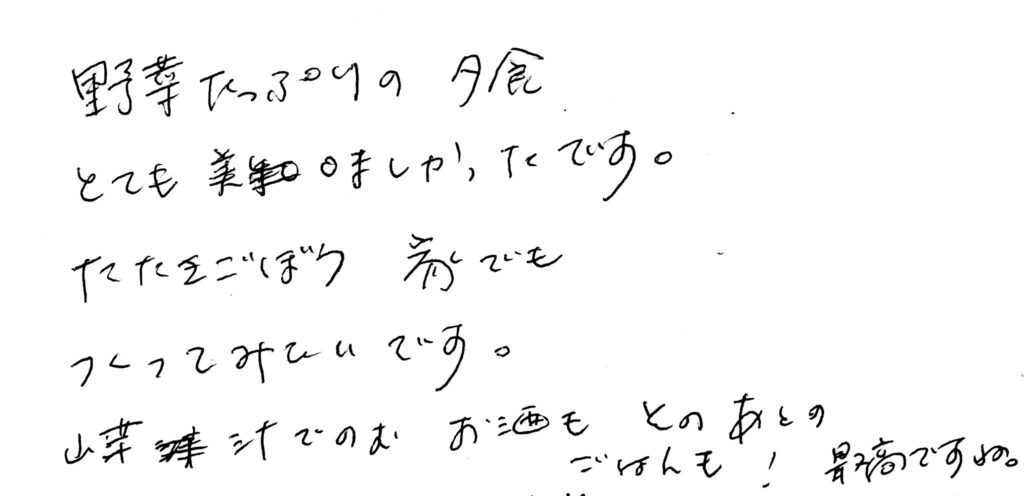 野菜たっぷりの 夕食
とても 美味しかったです。
たたきごぼう 家でも
つくってみたいです。
山菜 汁でのむ お酒も そのあとの
ごはんも! 最高ですね。